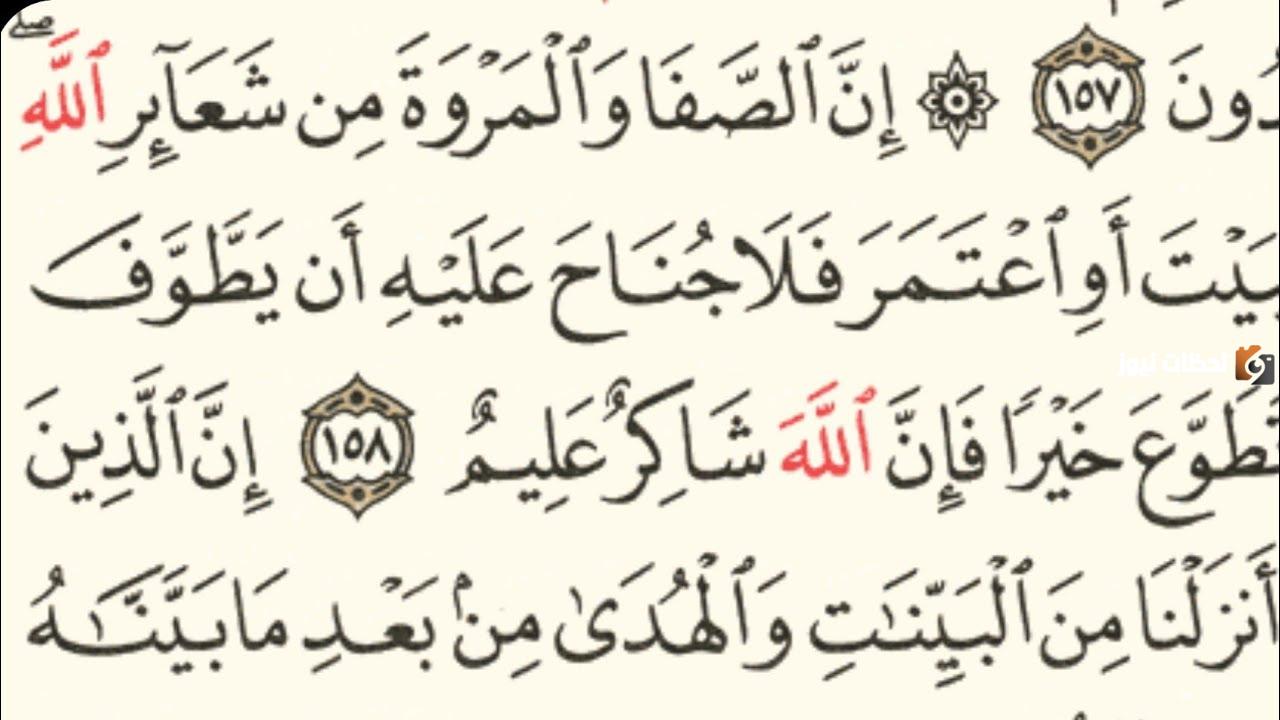 دُونَ ١٥٧ ۞ إِنَّ ٱلصَّفَا وَٱلْمَرْوَةَ مِن شَعَآئِرِ ٱللَّهِۖ
بَيْتَ أَوِ ٱعْتَمَرَ فَلَا جُنَاحَ عَلَيْهِ أَن يَطَّوَّفَ
لحظات نيوز
تَطَوَّعَ خَيْرًا فَإِنَّ ٱللَّهَ شَاكِرٌ عَلِيمٌ ١٥٨ إِنَّ ٱلَّذِينَ
أَنزَلْنَا مِنَ ٱلْبَيِّنَٰتِ وَٱلْهُدَىٰ مِنۢ بَعْدِ مَا بَيَّنَّٰهُ